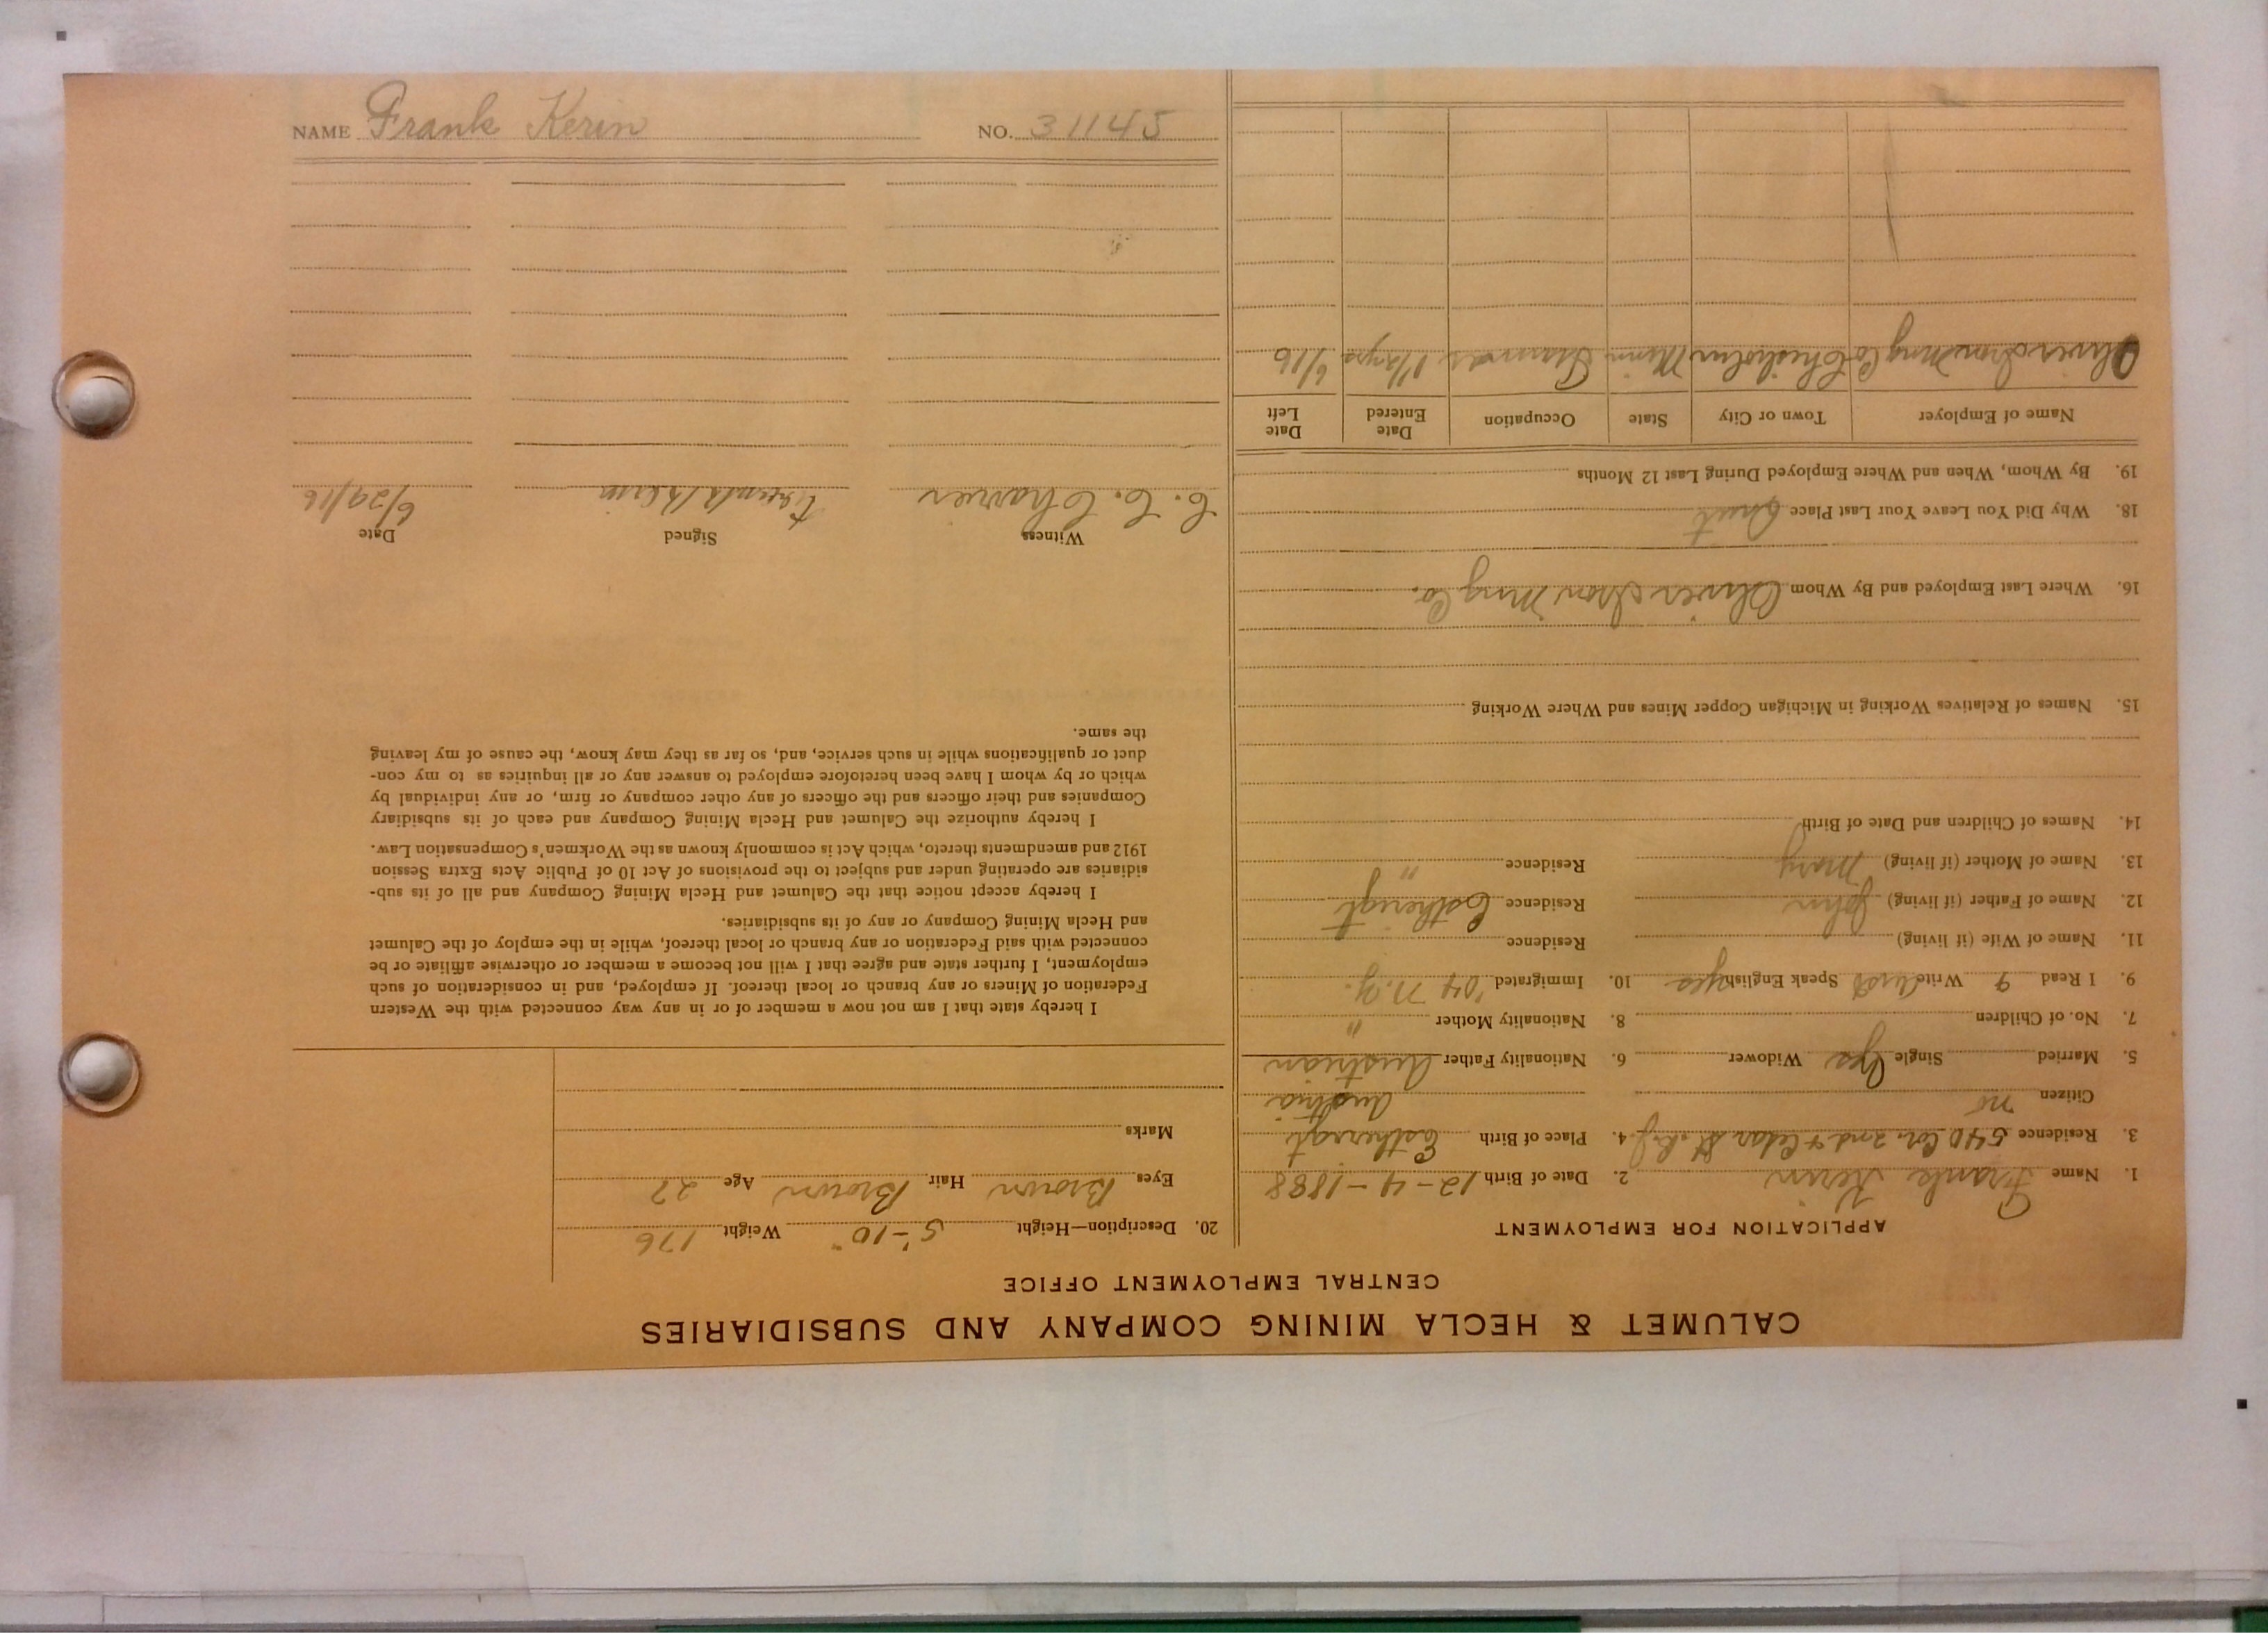 NAME Frank Kerin NO. 31145
CALUMET & HECLA MINING COMPANY AND SUBSIDIARIES
CENTRAL EMPLOYMENT OFFICE
APPLICATION FOR EMPLOYMENT
1. Name Frank Kerin 2. Date of Birth 12-4-1888
3. Residence 540 Cor. 2nd & Cedar St. 4. Place of Birth
Citizen no Austria
5. Married Single Yes Widower 6. Nationality Father Austrian
7. No. of Children 8. Nationality Mother "
9. I Read Write Speak English yes 10. Immigrated '04 N.Y.
11. Name of Wife (if living) Residence
12. Name of Father (if living) John Residence
13. Name of Mother (if living) Mary Residence "
14. Names of Children and Date of Birth
15. Names of Relatives Working in Michigan Copper Mines and Where Working
16. Where Last Employed and By Whom Oliver Iron Mng Co.
18. Why Did You Leave Your Last Place Quit
19. By Whom, When and Where Employed During Last 12 Months
Name of Employer Town or City State Occupation Date Entered Date Left
Oliver Iron Mng Co Chisholm Minn Trammer 6/16
20. Description—Height 5'-10" Weight 176
Eyes Brown Hair Brown Age 27
Marks
I hereby state that I am not now a member of or in any way connected with the Western
Federation of Miners or any branch or local thereof. If employed, and in consideration of such
employment, I further state and agree that I will not become a member or otherwise affiliate or be
connected with said Federation or any branch or local thereof, while in the employ of the Calumet
and Hecla Mining Company or any of its subsidiaries.
I hereby accept notice that the Calumet and Hecla Mining Company and all of its sub-
sidiaries are operating under and subject to the provisions of Act 10 of Public Acts Extra Session
1912 and amendments thereto, which Act is commonly known as the Workmen's Compensation Law.
I hereby authorize the Calumet and Hecla Mining Company and each of its subsidiary
Companies and their officers and the officers of any other company or firm, or any individual by
which or by whom I have been heretofore employed to answer any or all inquiries as to my con-
duct or qualifications while in such service, and, so far as they may know, the cause of my leaving
the same.
Witness Signed Date
6/29/16